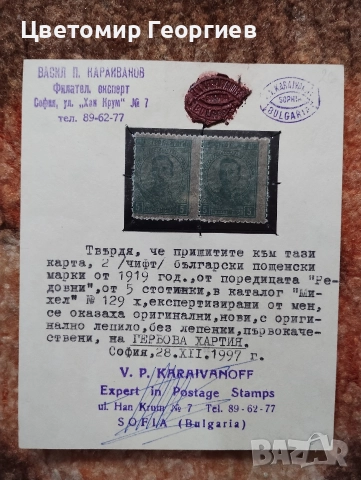 Цветомир Георгиев
ВАСИЛ П. КАРАИВАНОВ
Филател. експерт
София, ул. „Хан Крум" № 7
тел. 89-62-77
SOFIA
BULGARIA
Твърдя, че пришитите към тази
карта, 2 /чифт/ български пощенски
марки от 1919 год.,от поредицата "Ре-
довни",от 5 стотинки,в каталог "Ми-
хел" № 129 х,експертизирани от мен,
се оказаха оригинални,нови,с ориги-
нално лепило,без лепенки,първокаче-
ствени, на ГЕРБОВА ХАРТИЯ.
София,28.XII.1997 г.
V. P. KARAIVANOFF
Expert in Postage Stamps
ul. Han Krum № 7 Tel. 89-62-77
SOFIA (Bulgaria)
BAZAR